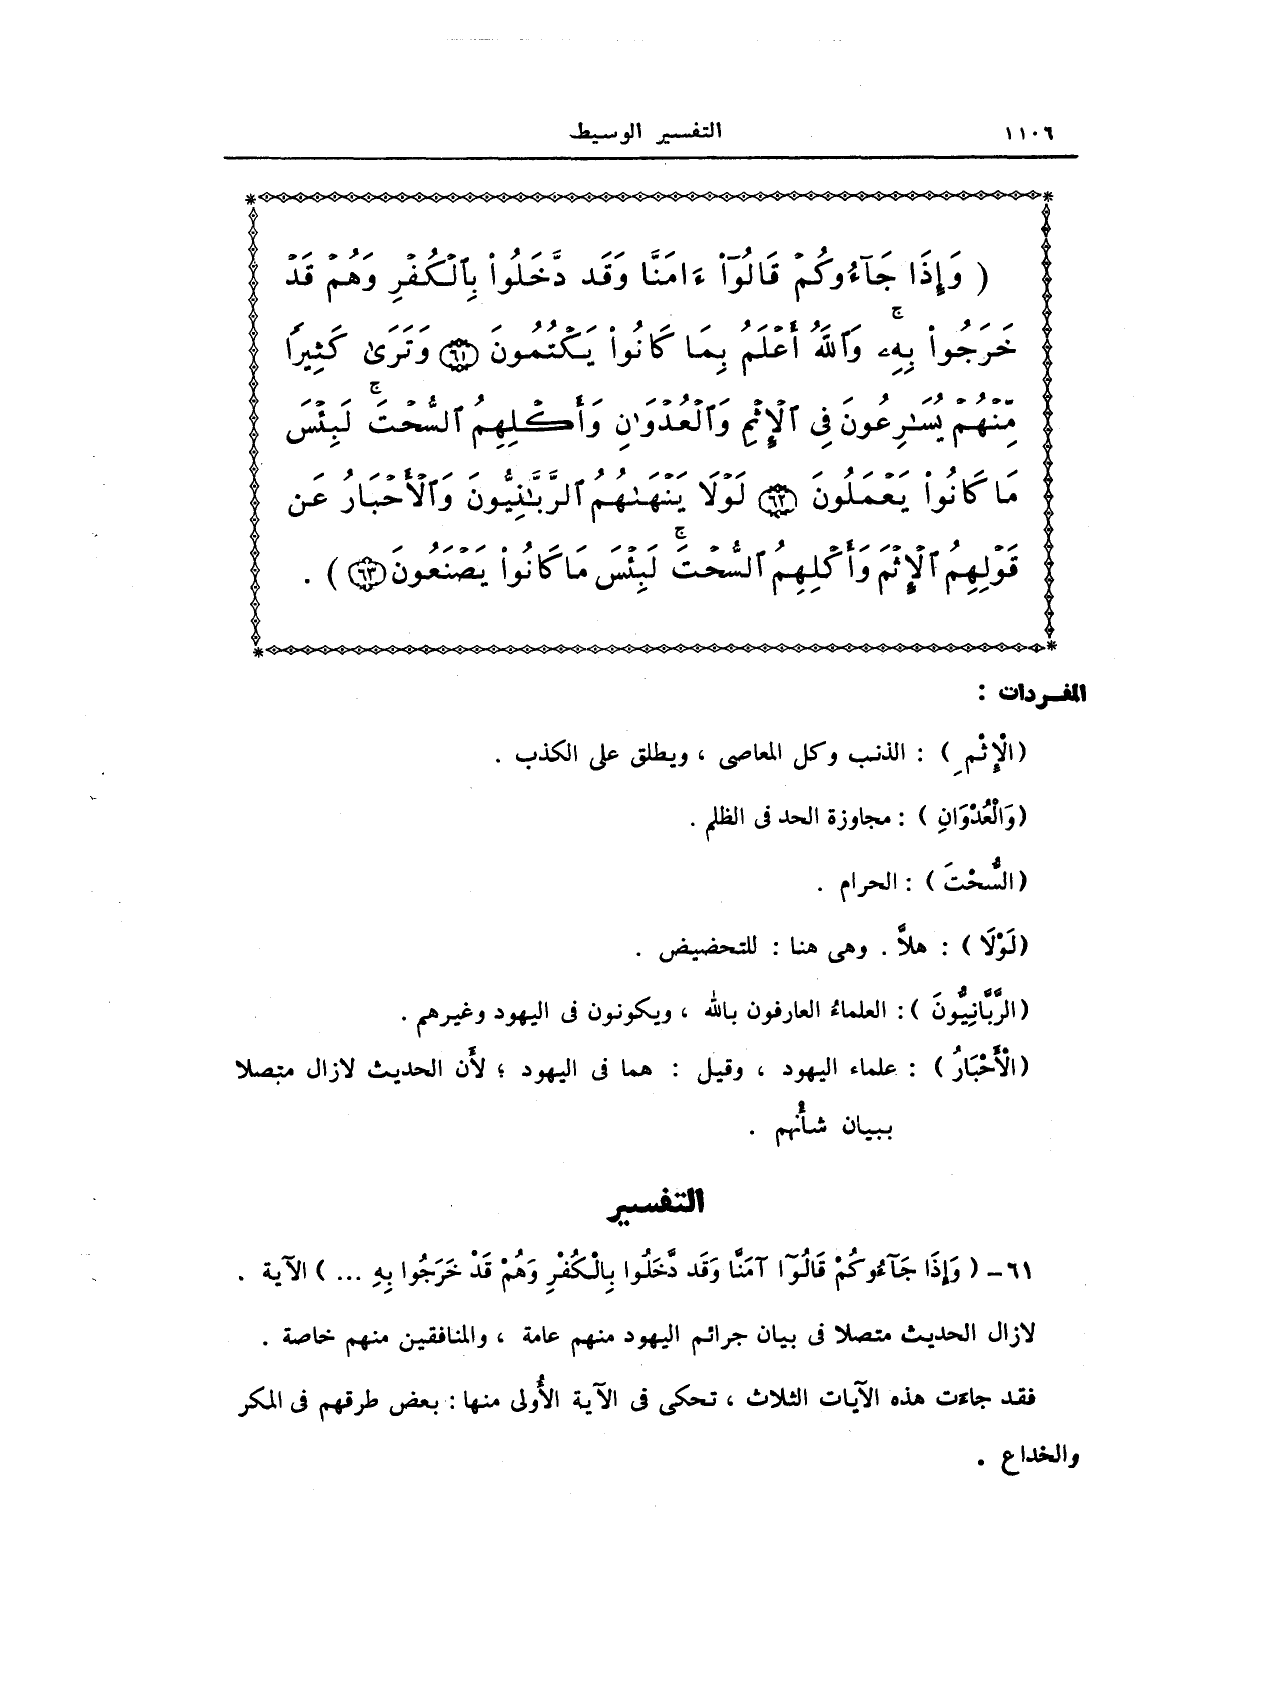 ١١٠٦ التفسير الوسيط
( وَإِذَا جَآءُوكُمْ قَالُوٓا۟ ءَامَنَّا وَقَد دَّخَلُوا۟ بِٱلْكُفْرِ وَهُمْ قَدْ
خَرَجُوا۟ بِهِۦ ۚ وَٱللَّهُ أَعْلَمُ بِمَا كَانُوا۟ يَكْتُمُونَ ٦١ وَتَرَىٰ كَثِيرًا
مِّنْهُمْ يُسَـٰرِعُونَ فِى ٱلْإِثْمِ وَٱلْعُدْوَٰنِ وَأَكْلِهِمُ ٱلسُّحْتَ ۚ لَبِئْسَ
مَا كَانُوا۟ يَعْمَلُونَ ٦٢ لَوْلَا يَنْهَىٰهُمُ ٱلرَّبَّـٰنِيُّونَ وَٱلْأَحْبَارُ عَن
قَوْلِهِمُ ٱلْإِثْمَ وَأَكْلِهِمُ ٱلسُّحْتَ ۚ لَبِئْسَ مَا كَانُوا۟ يَصْنَعُونَ ٦٣ ) .
المفـردات :
(الْإِثْمِ ) : الذنب وكل المعاصى ، ويطلق على الكذب .
(وَالْعُدْوَانِ ) : مجاوزة الحد فى الظلم .
(السُّحْتَ ) : الحرام .
(لَوْلَا ) : هلاَّ . وهى هنا : للتحضيض .
(الرَّبَّانِيُّونَ ) : العلماءُ العارفون بالله ، ويكونون فى اليهود وغيرهم .
(الْأَحْبَارُ ) : علماء اليهود ، وقيل : هما فى اليهود ؛ لأَن الحديث لازال متصلا
ببيان شأْنهم .
التفسير
٦١ – ( وَإِذَا جَآءُوكُمْ قَالُوٓا آمَنَّا وَقَد دَّخَلُوا بِالْكُفْرِ وَهُمْ قَدْ خَرَجُوا بِهِ ... ) الآية .
لازال الحديث متصلا فى بيان جرائم اليهود منهم عامة ، والمنافقين منهم خاصة .
فقد جاءت هذه الآيات الثلاث ، تحكى فى الآية الأُولى منها : بعض طرقهم فى المكر
والخداع .